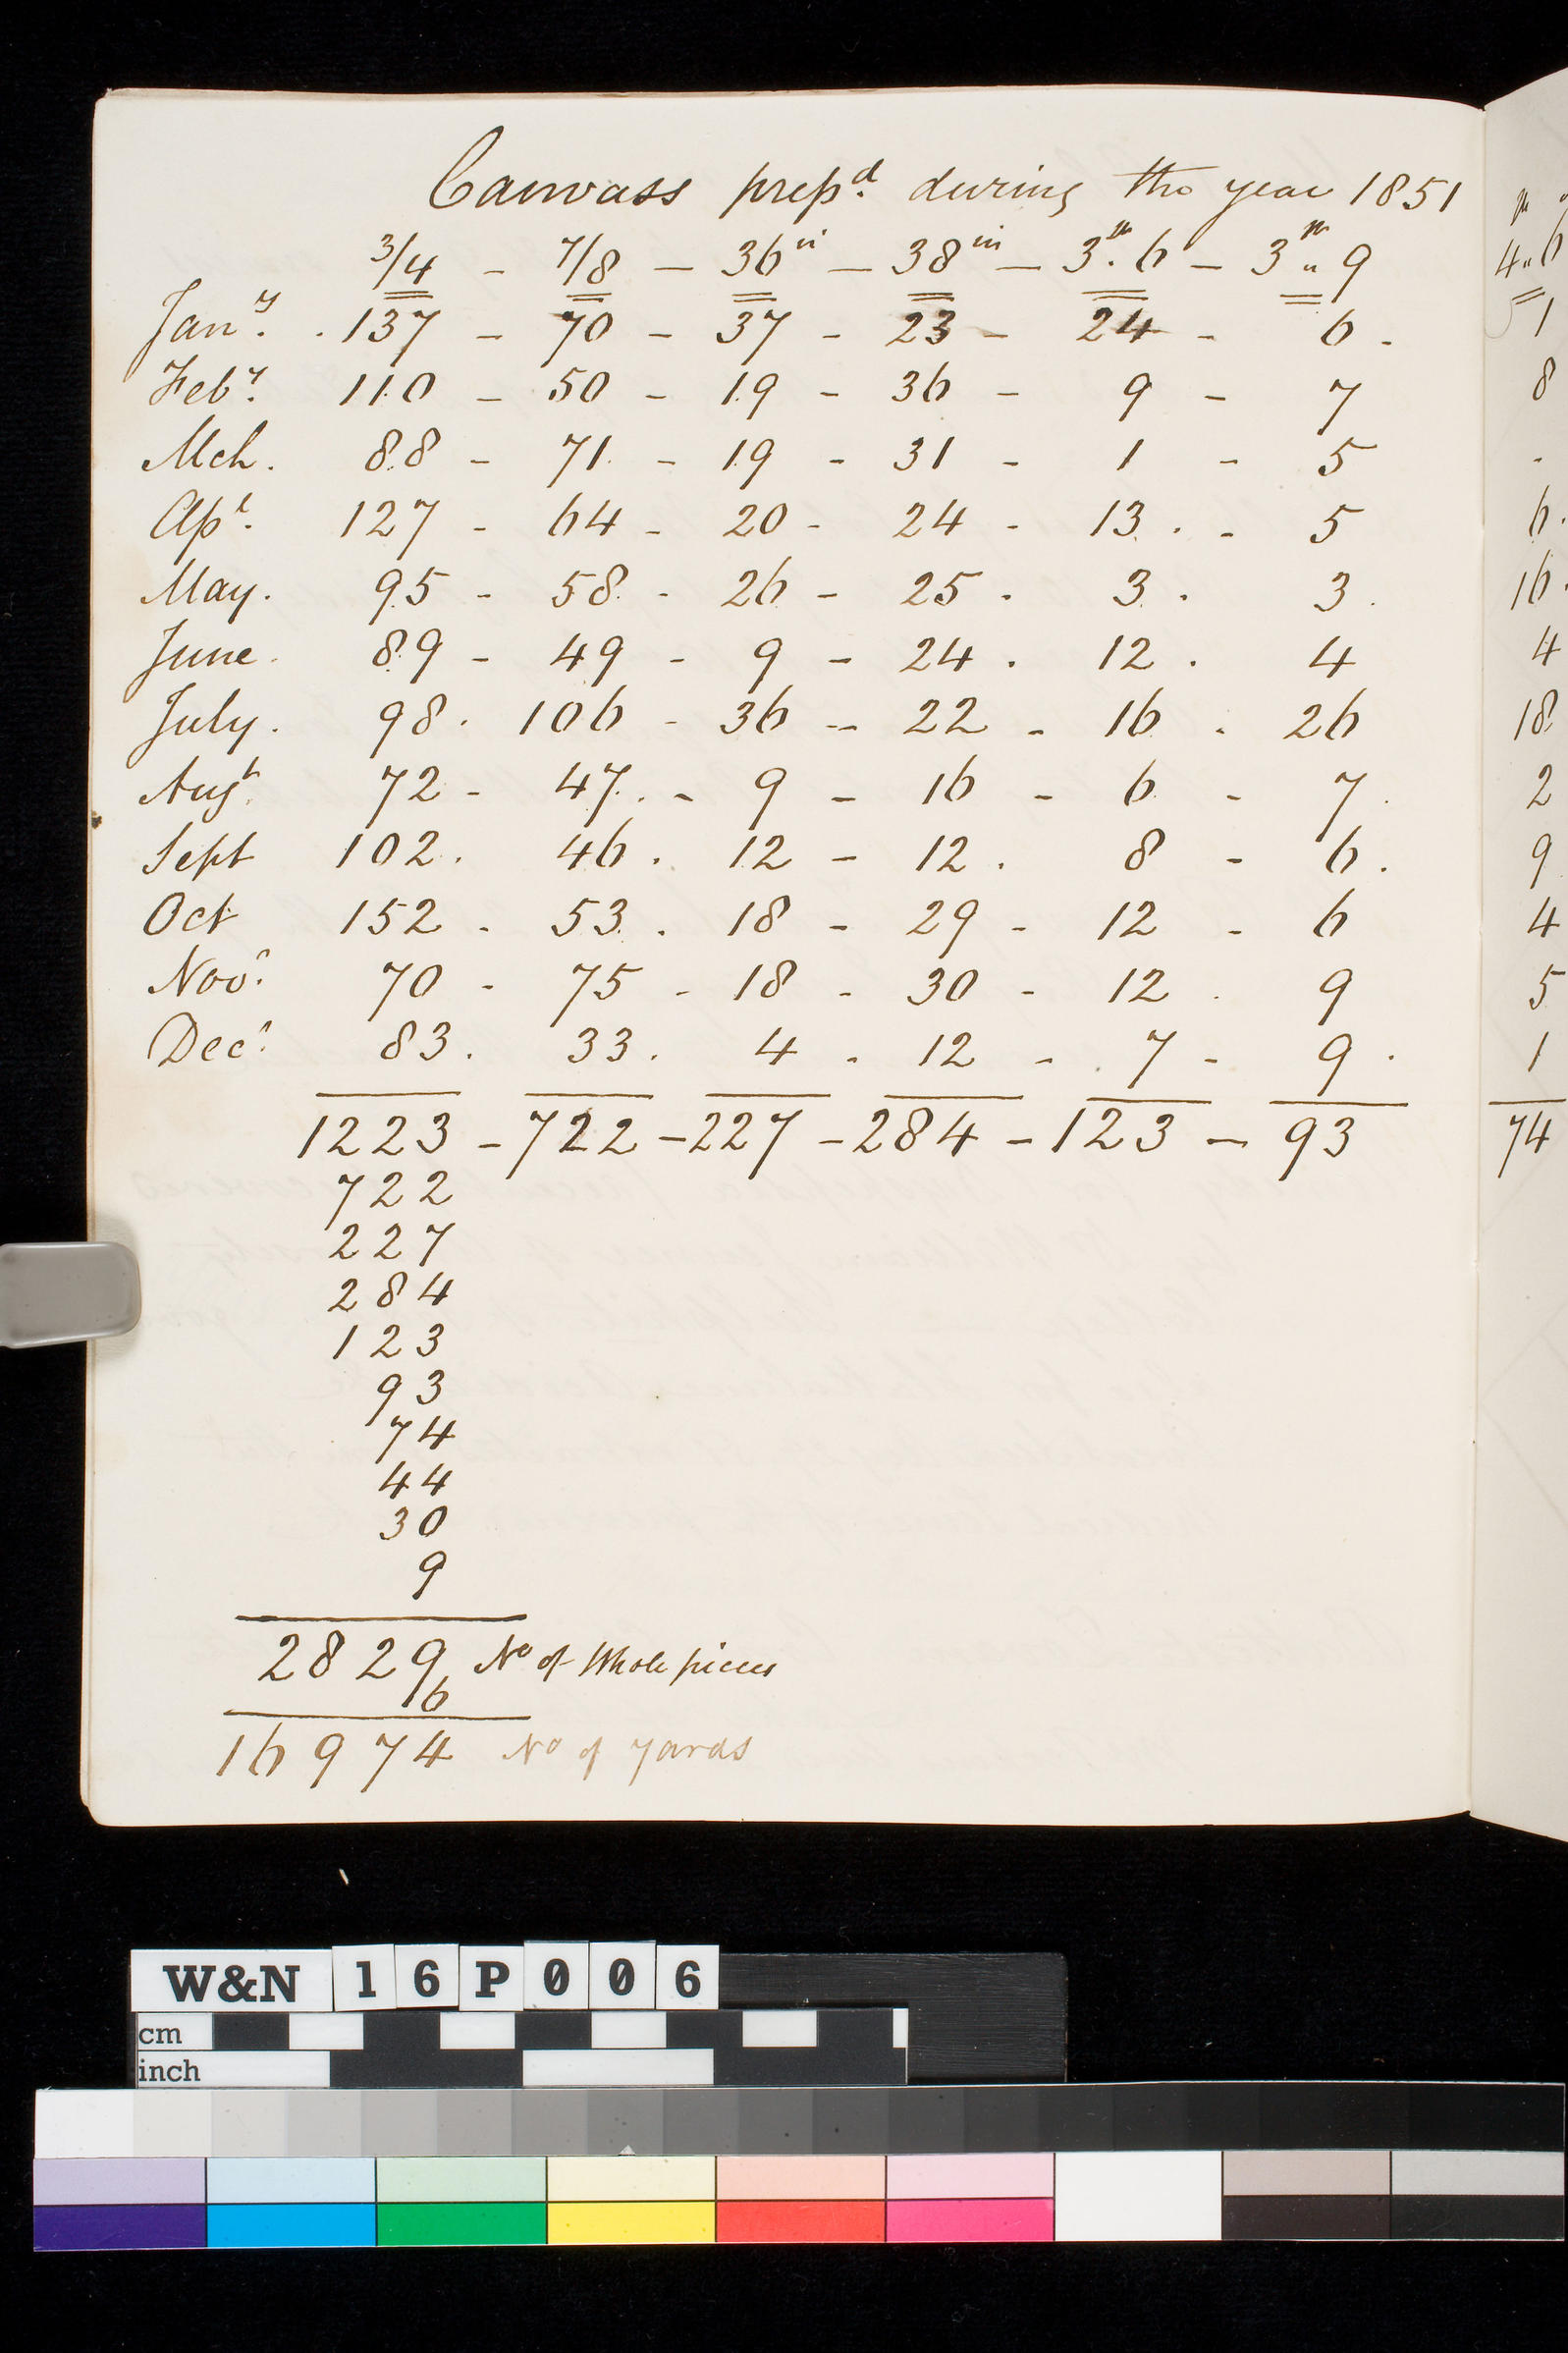 Canvass prepd. during the year 1851
3/4 - 7/8 - 36in - 38in - 3ft. 6 - 3ft " 9
Jany. . 137 - 70 - 37 - 23 - 24 - 6 .
Feby. 110 - 50 - 19 - 36 - 9 - 7
Mch. 88 - 71 - 19 - 31 - 1 - 5
Apl. 127 - 64 - 20 - 24 - 13 . - 5
May. 95 - 58 - 26 - 25 . 3 . 3 .
June. 89 - 49 - 9 - 24 . 12 . 4
July. 98 . 106 - 36 - 22 - 16 . 26
Augt. 72 - 47 . - 9 - 16 - 6 - 7 .
Sept 102 . 46 . 12 - 12 . 8 - 6 .
Oct 152 - 53 . 18 - 29 - 12 - 6
Novr. 70 - 75 - 18 - 30 - 12 . 9
Decr. 83 . 33 . 4 - 12 - 7 - 9 .
1223 - 722 - 227 - 284 - 123 - 93
722
227
284
123
93
74
44
30
9
2829 No of Whole pieces
6
16974 No of Yards
4 " 6
1
8
-
6 .
16 .
4
18
2
9
4
5
1
74
W&N 16P006
cm
inch